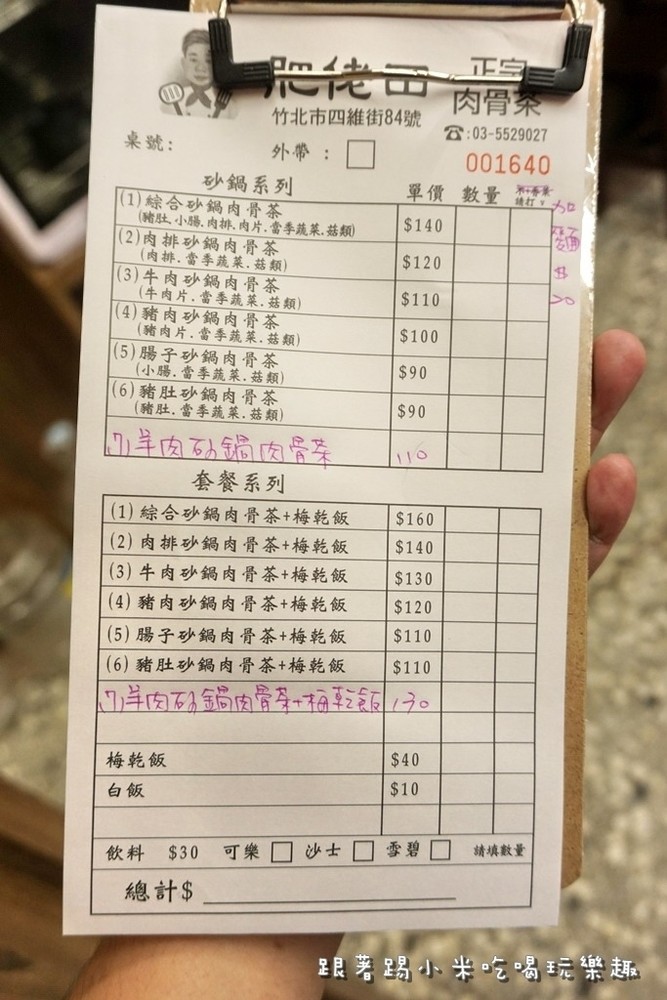 肥佬四
正宗
肉骨茶
竹北市四維街84號
☎:03-5529027
桌號:
外帶 : □
001640
砂鍋系列 單價 數量
請打 v
加
麵
$
20
(1)綜合砂鍋肉骨茶 $140
(豬肚.小腸.肉排.肉片.當季蔬菜.菇類)
(2)肉排砂鍋肉骨茶 $120
(肉排.當季蔬菜.菇類)
(3)牛肉砂鍋肉骨茶 $110
(牛肉片.當季蔬菜.菇類)
(4)豬肉砂鍋肉骨茶 $100
(豬肉片.當季蔬菜.菇類)
(5)腸子砂鍋肉骨茶 $90
(小腸.當季蔬菜.菇類)
(6)豬肚砂鍋肉骨茶 $90
(豬肚.當季蔬菜.菇類)
(7)羊肉砂鍋肉骨茶 110
套餐系列
(1)綜合砂鍋肉骨茶+梅乾飯 $160
(2)肉排砂鍋肉骨茶+梅乾飯 $140
(3)牛肉砂鍋肉骨茶+梅乾飯 $130
(4)豬肉砂鍋肉骨茶+梅乾飯 $120
(5)腸子砂鍋肉骨茶+梅乾飯 $110
(6)豬肚砂鍋肉骨茶+梅乾飯 $110
(7)羊肉砂鍋肉骨茶+梅乾飯 130
梅乾飯 $40
白飯 $10
飲料 $30 可樂 □ 沙士 □ 雪碧 □ 請填數量
總計$
跟著踢小米吃喝玩樂趣